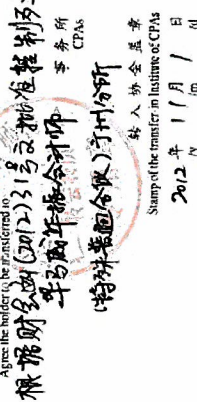 Agree the holder to be transferred to
根据财会函(2012)31号文批准转制为:
毕马威华振会计师
事务所
CPAs
(特殊普通合伙)广州分所
转入协会盖章
Stamp of the transfer-in Institute of CPAs
2012年11月1日